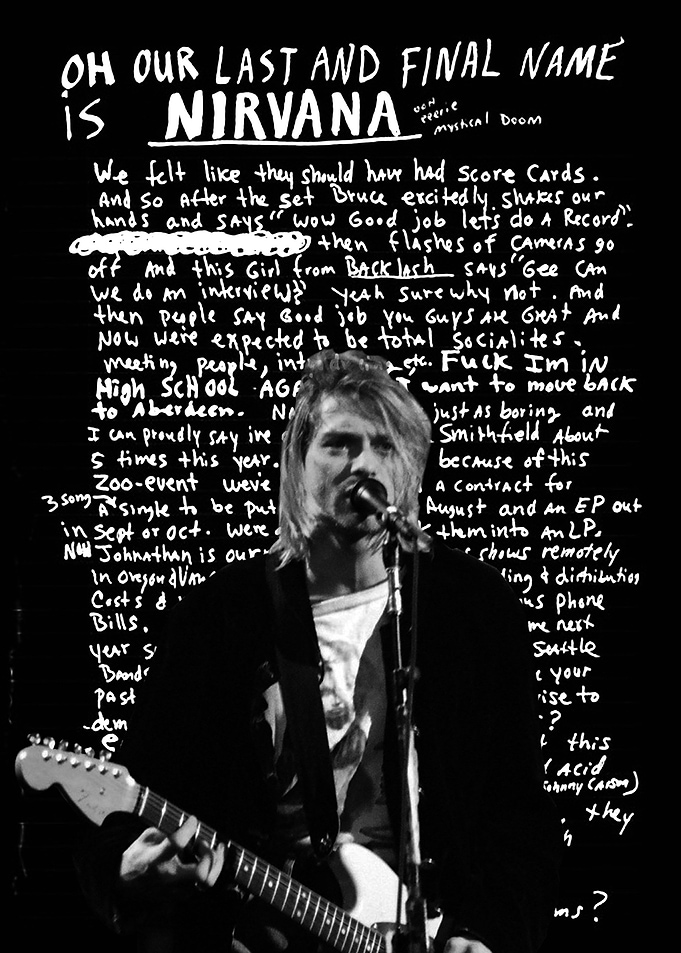 OH OUR LAST AND FINAL NAME
is NIRVANA ooh eerie mystical Doom
We felt like they should have had score cards.
And so after the set Bruce excitedly shakes our
hands and says "wow Good job lets do A Record".
then flashes of cameras go
off And this Girl from BACKlash says "Gee Can
we do an interview? yeah sure why not. And
then people say Good job you Guys are Great And
Now were expected to be total socialites.
meeting people, etc. Fuck Im in
High SCHOOL want to move back
to Aberdeen. just As boring and
I can proudly say ive Smithfield About
5 times this year. because of this
Zoo-event weve a contract for
3 song
A single to be put August and an EP out
in Sept or Oct. were them into An LP.
Now Johnathan is our shows remotely
In Oregon & & distribution
Costs & phone
Bills. me next
year Seattle
your
past to
?
this
Acid
they
?